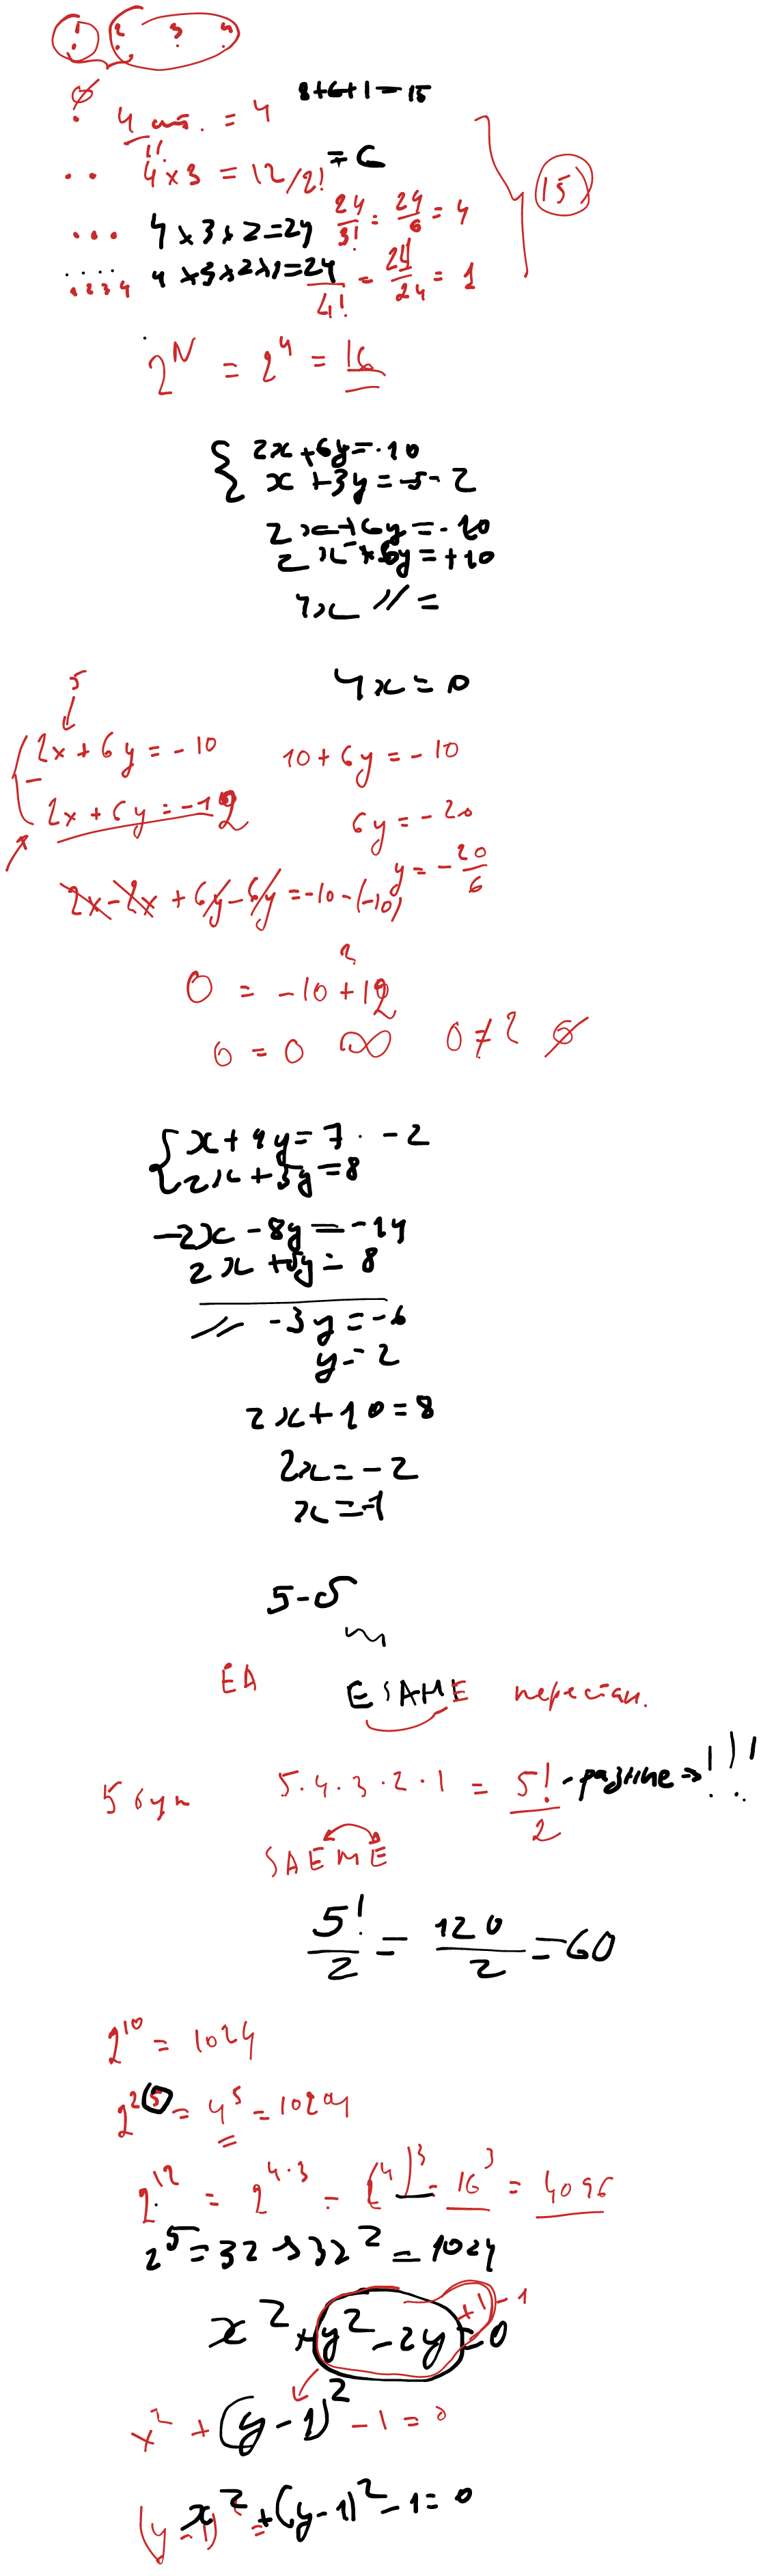 1 2 3 4
∅
8+6+1=15
4 = 4
1!
4×3 = 12/2! = 6
15
4×3×2=24 24/3! = 24/6 = 4
1 2 3 4 4×3×2×1=24/4! = 24/24 = 1
2^N = 2^4 = 16
{ 2x+6y=-10
x+3y=-5 · 2
2x+6y=-10
2x+6y=+10
4x // =
4x=0
5
2x+6y=-10 10+6y=-10
2x+6y=-12 6y=-20
y=-20/6
2x-2x+6y-6y=-10-(-10)
2
0 = -10+12
0 = 0 ∞ 0≠2 ∅
{ x+4y=7 · -2
2x+5y=8
-2x-8y=-14
2x+5y=8
// -3y=-6
y=2
2x+10=8
2x=-2
x=-1
5-5
EA ESAME перестан.
5 букв 5·4·3·2·1 = 5!/2 - разные => !!!
SAEME
5!/2 = 120/2 = 60
2^10 = 1024
2^2(5) = 4^5 = 1024
2^12 = 2^4·3 = (2^4)^3 = 16^3 = 4096
2^5=32 → 32^2=1024
x^2+y^2-2y+1-1=0
x^2+(y-1)^2-1=0
x^2+(y-1)^2-1=0
(y-1)^2=